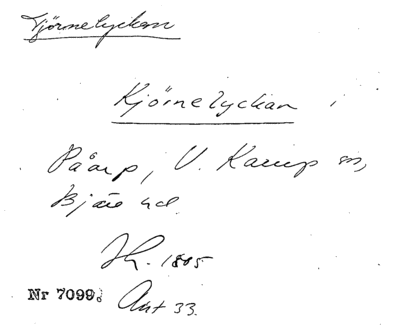 Tjörnelyckan
Kjörnelyckan i
Påarp, V. Karup sn,
Bjäre hd.
Jh. 1805
Nr 7099. Ant 33.